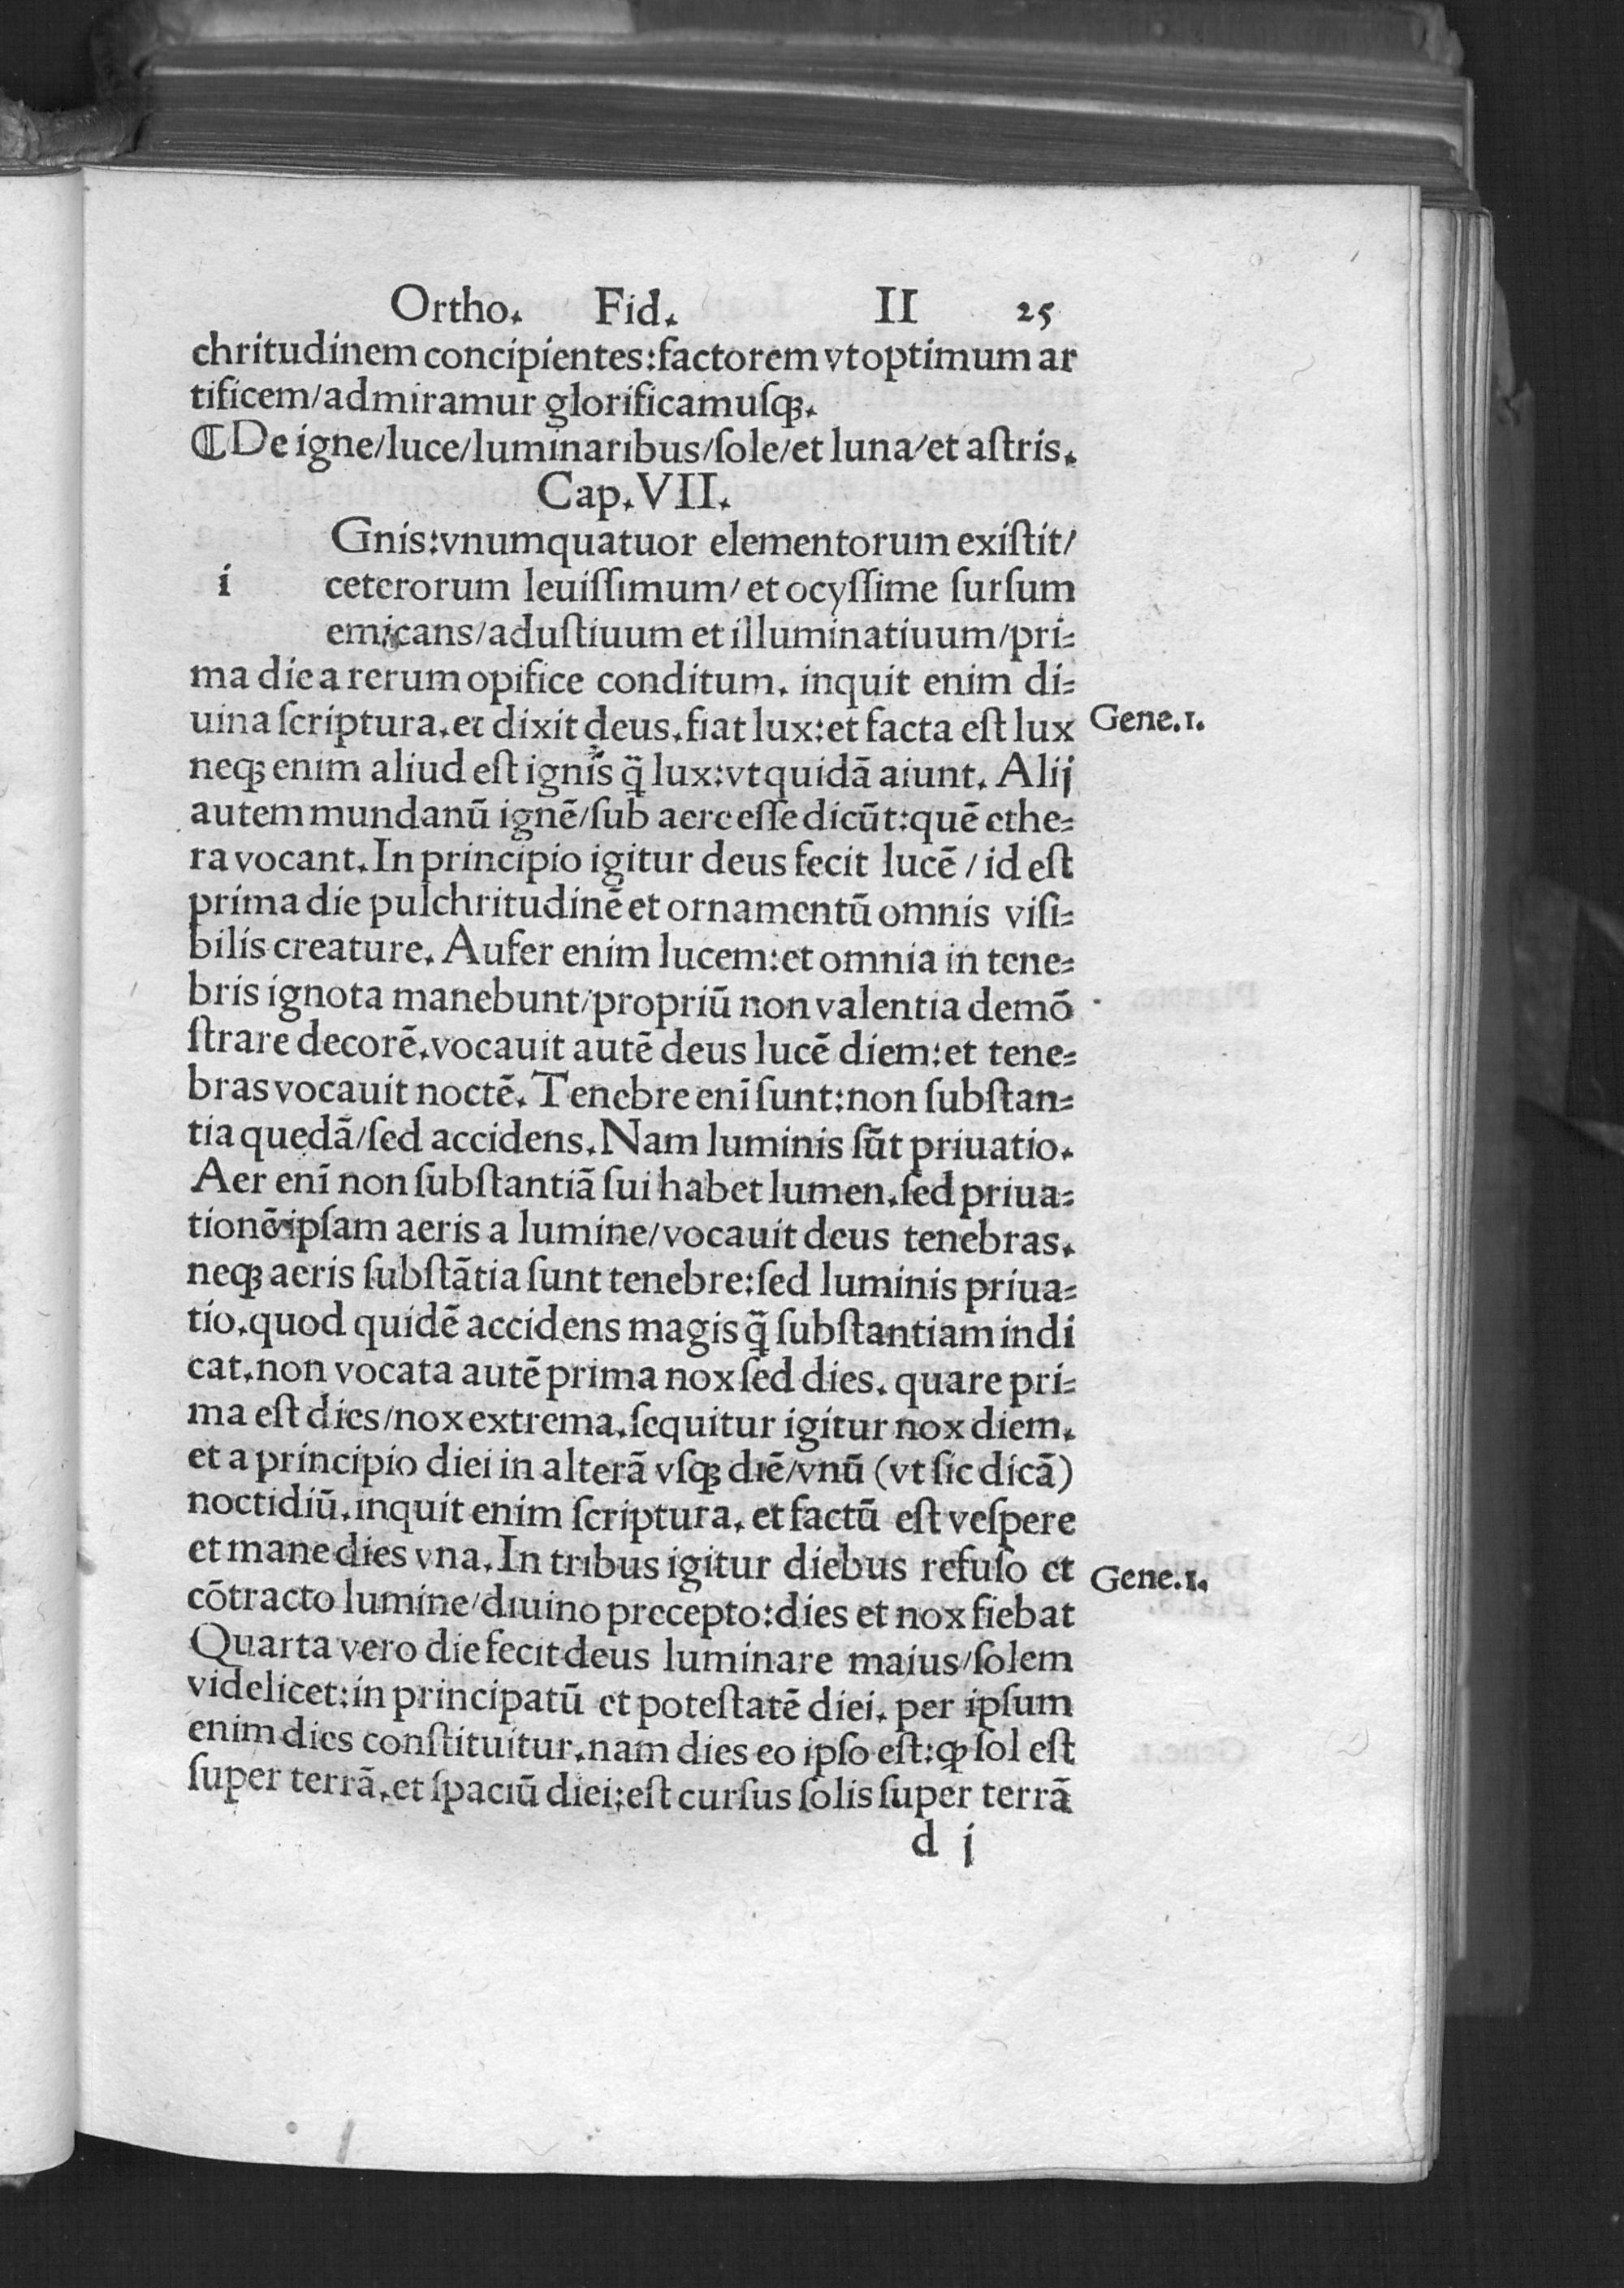 Ortho. Fid. II 25
chritudinem concipientes:factorem vt optimum ar
tificem/admiramur glorificamuſqꝫ.
⸿De igne/luce/luminaribus/ſole/et luna/et aſtris.
Cap.VII.
Gnis:vnum quatuor elementorum exiſtit/
i ceterorum leuiſſimum/et ocyſſime ſurſum
emicans/aduſtiuum et illuminatiuum/pri⸗
ma die a rerum opifice conditum. inquit enim di⸗
uina ſcriptura.et dixit deus.fiat lux:et facta eſt lux Gene.1.
neqꝫ enim aliud eſt ignis q̃ lux:vt quidã aiunt. Alij
autem mundanũ ignẽ/ſub aere eſſe dicũt:quẽ ethe⸗
ra vocant.In principio igitur deus fecit lucẽ/id eſt
prima die pulchritudinẽ et ornamentũ omnis viſi⸗
bilis creature. Aufer enim lucem:et omnia in tene⸗
bris ignota manebunt/propriũ non valentia demõ
ſtrare decorẽ.vocauit autẽ deus lucẽ diem:et tene⸗
bras vocauit noctẽ. Tenebre enĩ ſunt:non ſubſtan⸗
tia quedã/ſed accidens.Nam luminis ſũt priuatio.
Aer enĩ non ſubſtantiã ſui habet lumen.ſed priua⸗
tionẽ ipſam aeris a lumine/vocauit deus tenebras.
neqꝫ aeris ſubſtãtia ſunt tenebre:ſed luminis priua⸗
tio.quod quidẽ accidens magis q̃ ſubſtantiam indi
cat.non vocata autẽ prima nox ſed dies. quare pri⸗
ma eſt dies/nox extrema.ſequitur igitur nox diem.
et a principio diei in alterã vſqꝫ diẽ/vnũ (vt ſic dicã)
noctidiũ.inquit enim ſcriptura. et factũ eſt veſpere
et mane dies vna.In tribus igitur diebus refuſo et Gene.1.
cõtracto lumine/diuino precepto:dies et nox fiebat
Quarta vero die fecit deus luminare maius/ſolem
videlicet:in principatũ et poteſtatẽ diei. per ipſum
enim dies conſtituitur.nam dies eo ipſo eſt:ꝙ ſol eſt
ſuper terrã.et ſpaciũ diei:eſt curſus ſolis ſuper terrã
d j